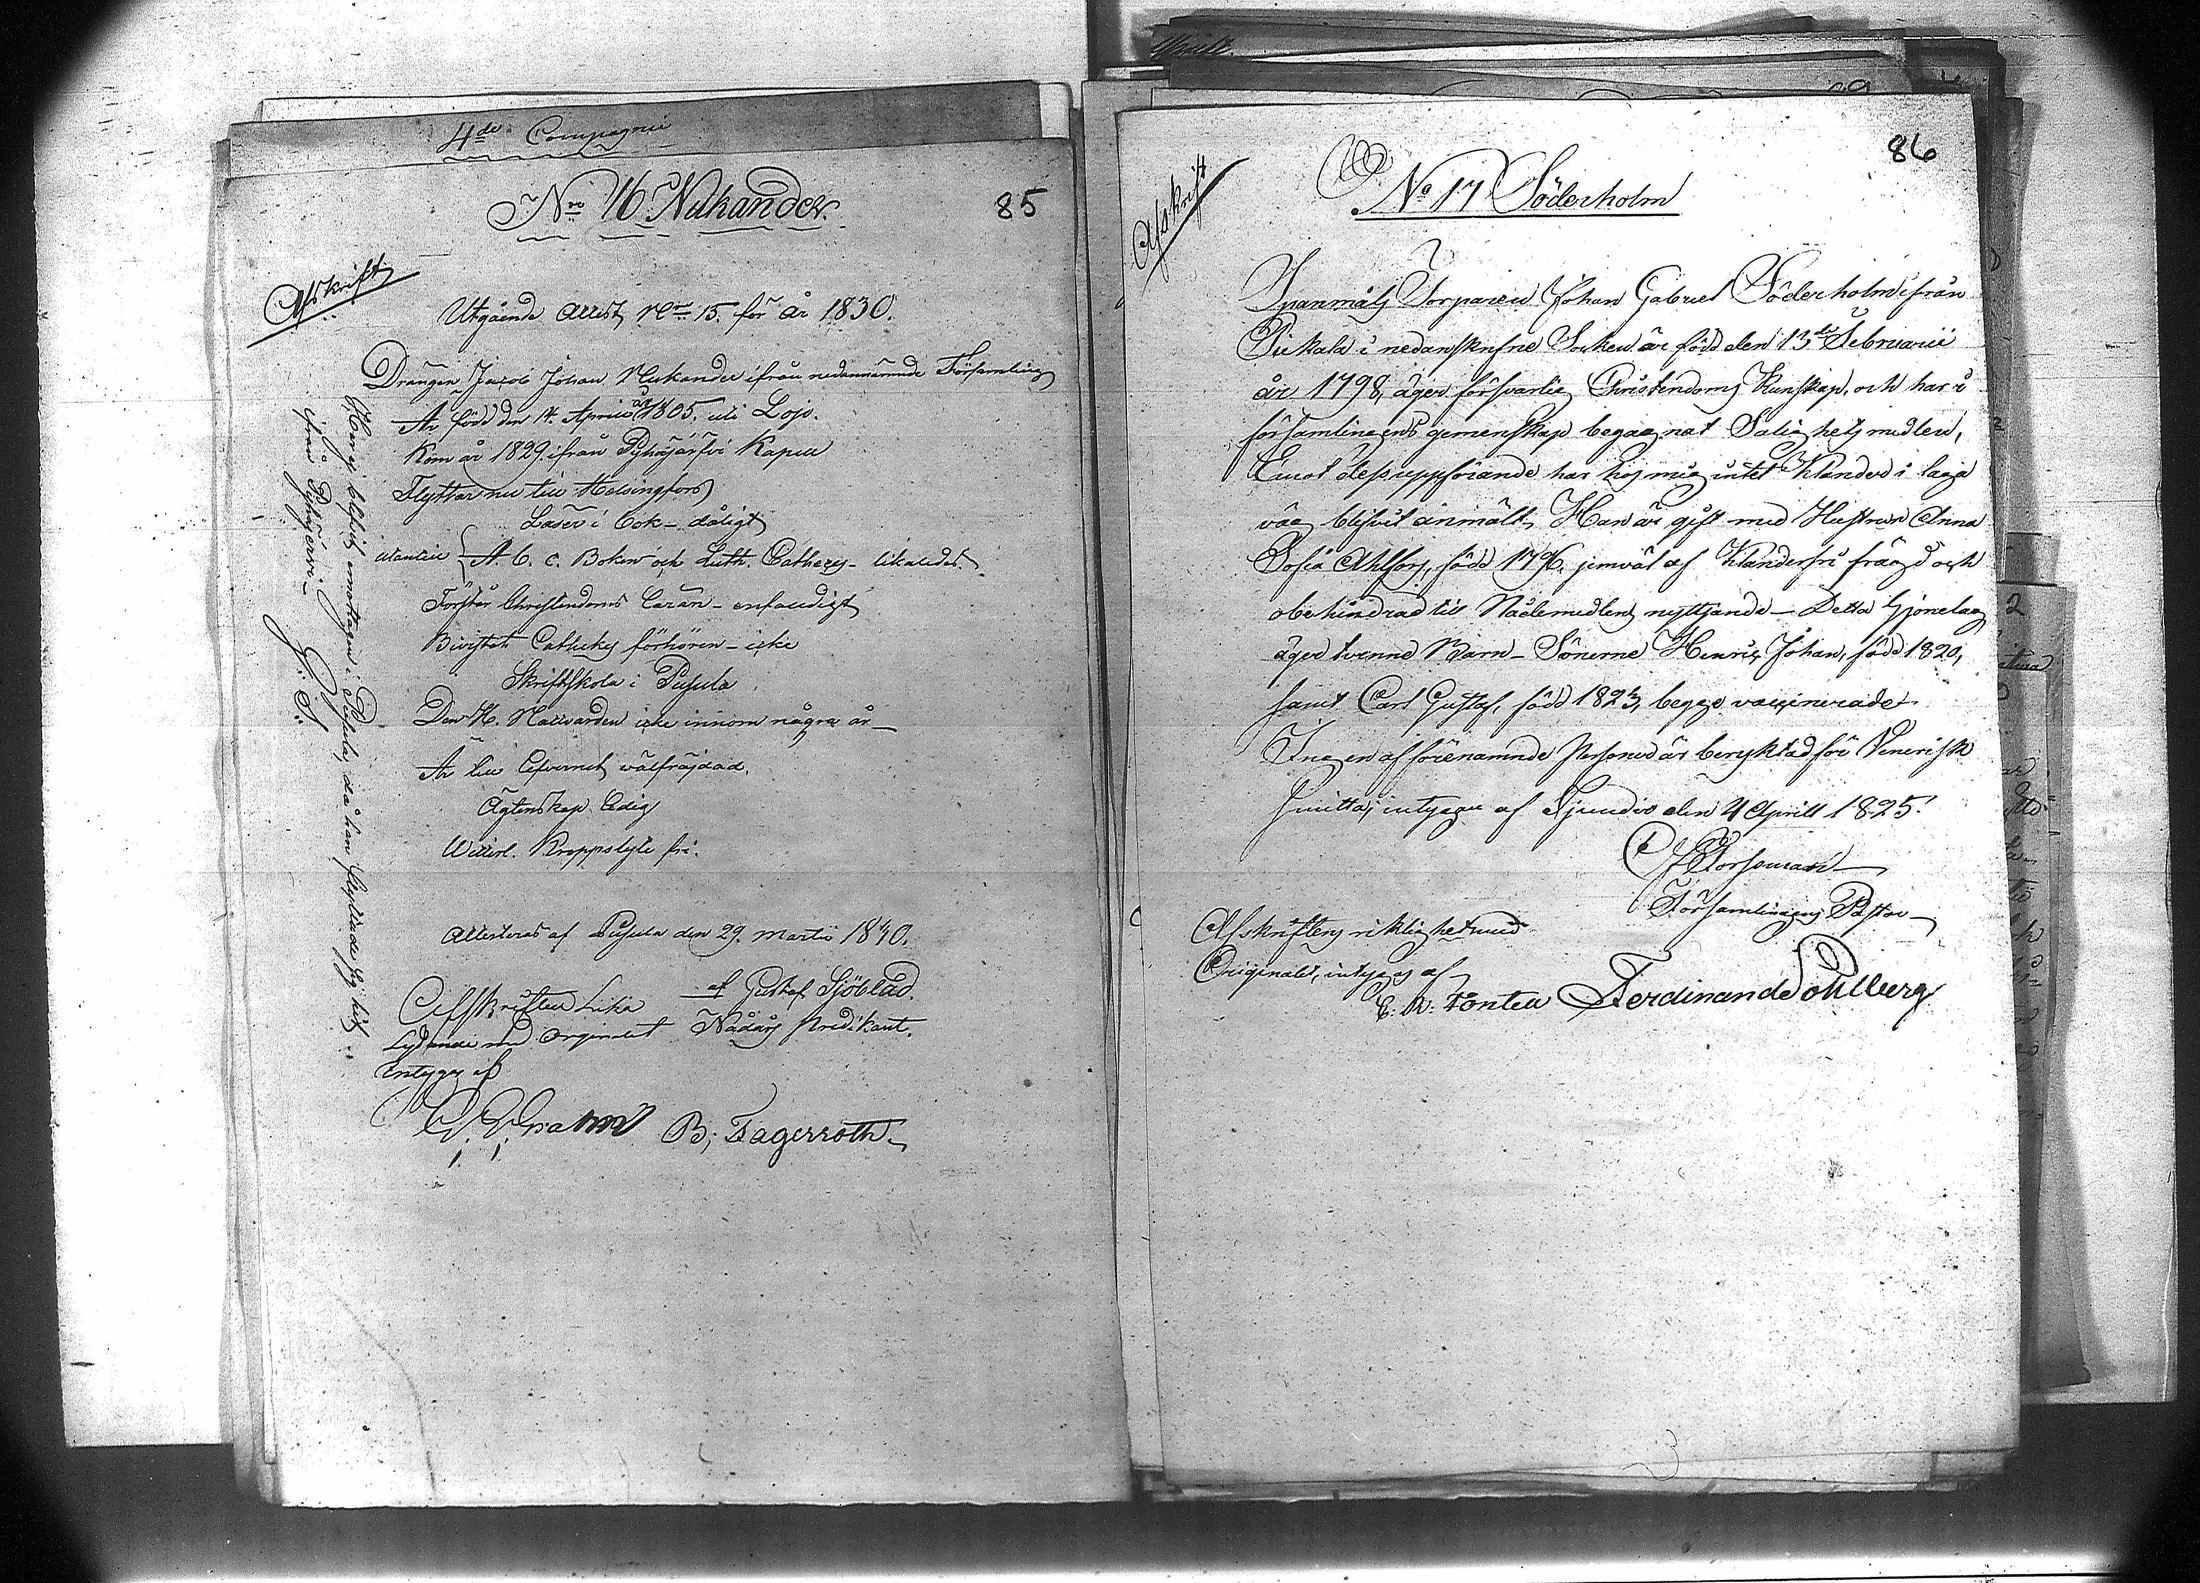 4de Compagnie
Nro 16 Nukander.
85
Afskrift
Utgående Attest, No 15. för år 1830.
Drängen Jacob Johan Nukander ifrån nedannämnde Församling
Är född den 14. Aprill år 1805, uti Lojo.
Kom år 1829. ifrån Pyhäjärfvi Kapell
Flyttar nu till Helsingfors
Läser i bok - dåligt
utantill A. b. c. Boken och Luth. Cathezes - likaledes.
Förstår Christendoms Läran - enfaldigt
Bivistat Catheches förhören - icke
Skriftskola i Pusula
Den H. Nattvarden icke innom några år -
Är till Lefvernet wälfräjdad.
Ägtenskap ledig
Witterl. Kroppslyte fri.
Attesteras af Pusula den 29. Martii 1830.
af Gustaf Sjöblad.
Nådårs Predikant.
Afskriften Lika
Lydande med Orginalet
intygas af
B; Fagerroth
Har ej blifvit emottagen i Pusula, då han flyttade sig hit
ifrån Pyhäjervi - G: S:
86
Afskrift
No 17 Söderholm
Innanmäls Torparen Johan Gabriel Söderholm ifrån
Pickala i nedanskrifne Socken är född den 13de Februarii
år 1798, äger försvarlig Christendoms Kunskap, och har i
församlingens gemenskap begagnat Salighets medlen,
Emot dess uppförande har hos mig intet Klander i laga
väg blifvit anmält, Han är gift med Hustrun Anna
Sofia Ahlfors, född 1796, jemväl af Klanderfri frägd och
obehindrad till Nådemedlens nyttjande - Detta Hjonelag
äger tvenne Barn - Sönerne Henric Johan, född 1820,
samt Carl Gustaf, född 1823, begge vaccinerade
Ingen af förenämnde Personer är beryktad för Venerisk
smitta; intygas af Sjundeo den 4 Aprill 1825.
Forsman
Församlingens Pastor
Afskriftens riktighet med
Originalet, intygas af
E. W. Fontell Ferdinand Pohlberg